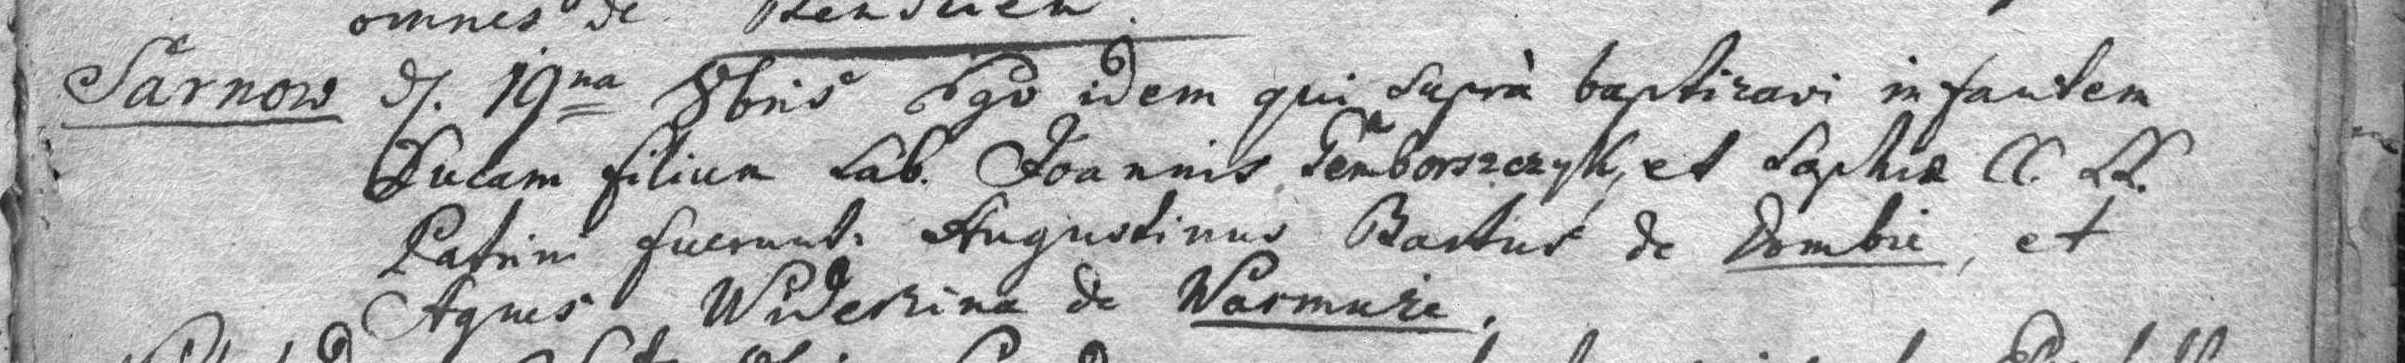 omnes de Bendzien.
Sarnow d. 19na 8bris Ego idem qui Supra baptizavi infantem
Lucam filium Lab. Joannis Temborszczyk, et Sophiæ CC. LL.
Patrini fuerunt Augustinus Bartus de Dombie, et
Agnes Widerzina de Warmuze.